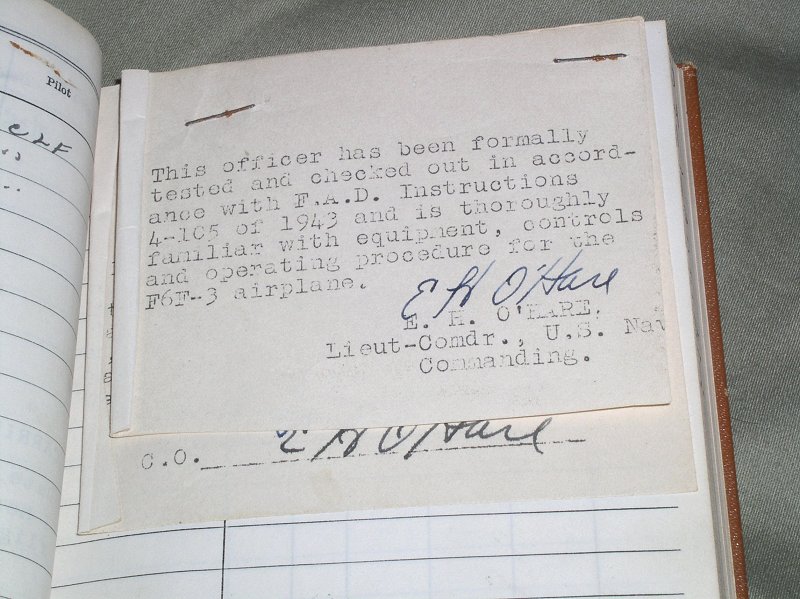 Pilot
This officer has been formally
tested and checked out in accord-
ance with F.A.D. Instructions
4-105 of 1943 and is thoroughly
familiar with equipment, controls
and operating procedure for the
F6F-3 airplane.
E H O'Hare
E. H. O'HARE,
Lieut-Comdr., U.S. Nav
Commanding.
C.O. E H O'Hare